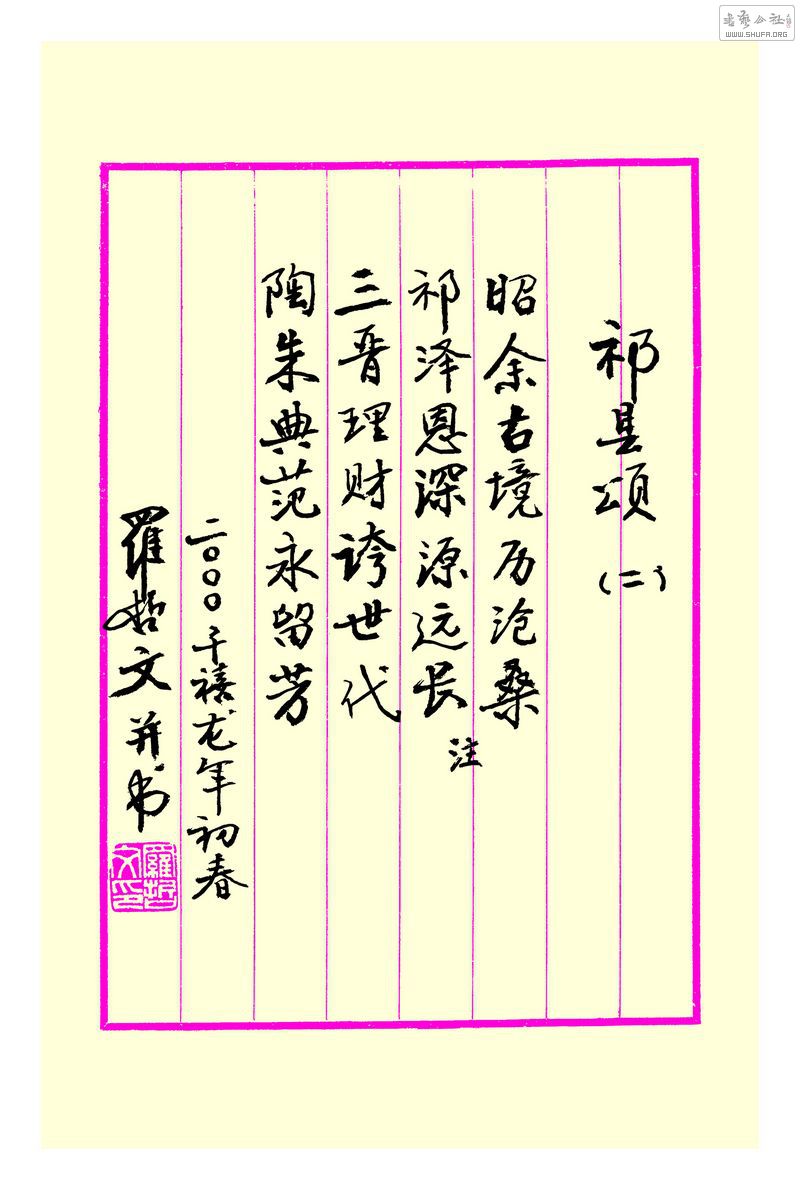 祁县颂
（二）
昭余古境历沧桑
祁泽恩深源远长 注
三晋理财誇世代
陶朱典范永留芳
二〇〇〇千禧龙年初春
羅哲文并书
羅哲文印
書艺公社
WWW.SHUFA.ORG